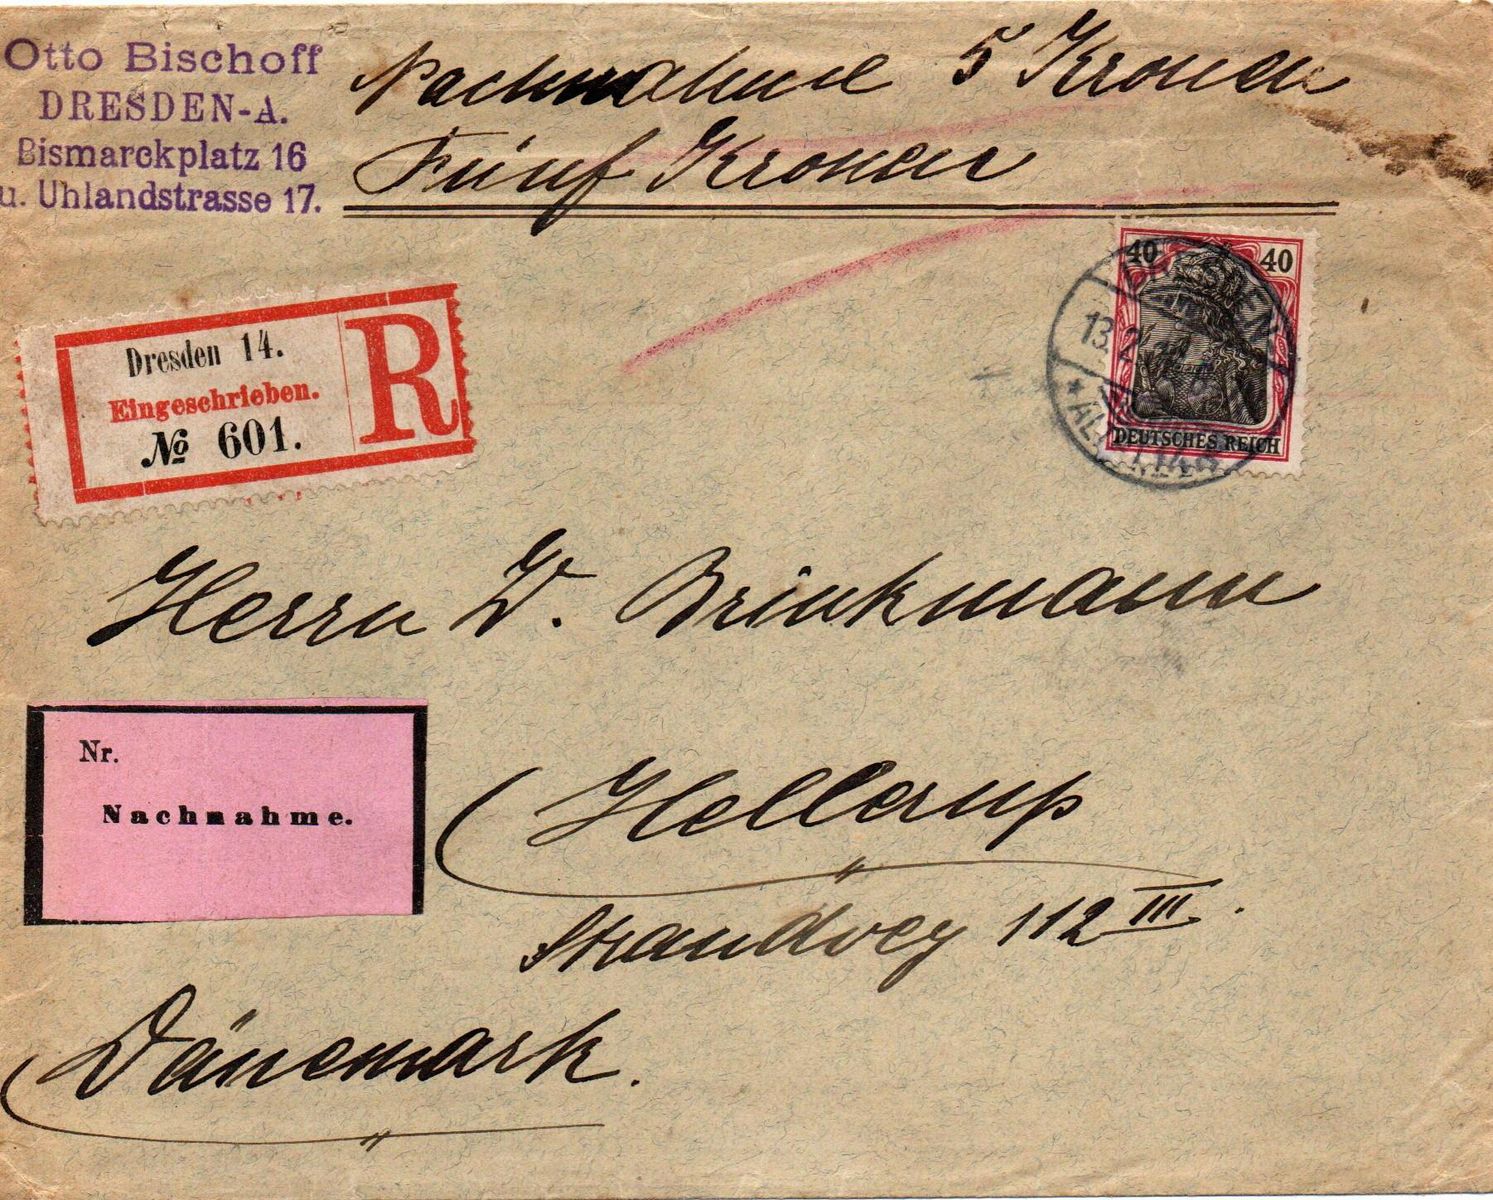 Otto Bischoff
DRESDEN-A.
Bismarckplatz 16
u. Uhlandstrasse 17.
Nachnahme 5 Kronen
Fünf Kronen
40 40
DEUTSCHES REICH
13.2
Dresden 14.
Eingeschrieben.
№ 601.
R
Herrn W. Brinkmann
Nr.
Nachnahme.
Hellerup
Strandvey 112 III.
Dänemark.